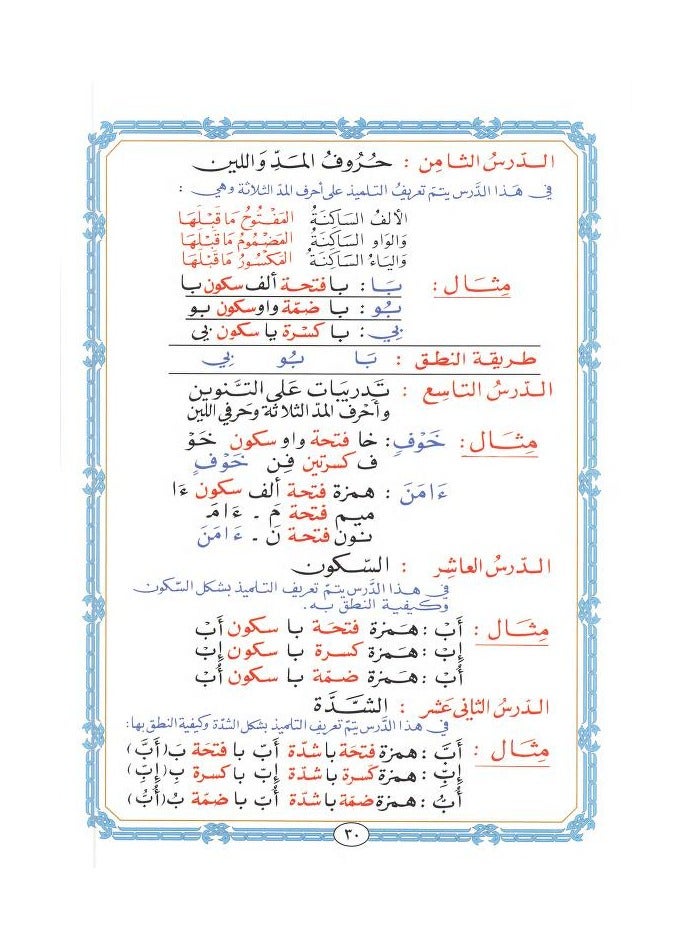 الدّرسُ الثامن : حُرُوفُ المَدِّ وَاللين
في هَذا الدَّرسِ يتمّ تعريفُ التلميذ على أحرف المدّ الثلاثة وهي :
الألفُ السَاكِنَةُ المَفْتُوحُ مَا قَبْلَهَا
وَالوَاو السَاكِنَةُ المَضْمُومُ مَا قَبْلَهَا
وَاليَاءُ السَاكِنَةُ المَكْسُورُ مَا قَبْلَهَا
مِثَال : بَا : با فتحة ألف سكون با
بُو : با ضمّة واو سكون بو
بِي : با كسرة يا سكون بي
طريقة النطق : بَا بُو بِي
الدّرسُ التاسع : تَدريبَات عَلى التَّنوين
وأحْرف المدّ الثلاثة وحَرفي اللين
مِثَال : خَوْفٍ : خا فتحة واو سكون خَوْ
ف كسرتين فٍن خَوْفٍ
ءَامَنَ : همزة فتحة ألف سكون ءَا
ميم فتحة مَ . ءَامَ
نون فتحة نَ . ءَامَنَ
الدّرسُ العاشِر : السّكون
في هَذا الدَّرسِ يتمّ تعريف التلميذ بشكل السّكون
وكيفية النطق به .
مِثَال : أَبْ : هَمزة فتحَة با سكون أَبْ
إِبْ : هَمزة كسرة با سكون إِبْ
أُبْ : هَمزة ضمّة با سكون أُبْ
الدّرسُ الثانى عَشر : الشَّدَّة
في هذا الدَّرسِ يتمّ تعريف التلميذ بشكل الشّدّة وكيفية النطق بها :
مِثَال : أَبَّ : همزة فتحَة با شدّة أَبّ با فتحَة بَ (أَبَّ)
إِبِّ : همزة كسرة با شدّة إِبّ با كسرة بِ (إِبِّ)
أُبُّ : همزة ضمّة با شدّة أُبّ با ضمّة بُ (أُبُّ)
٣٠